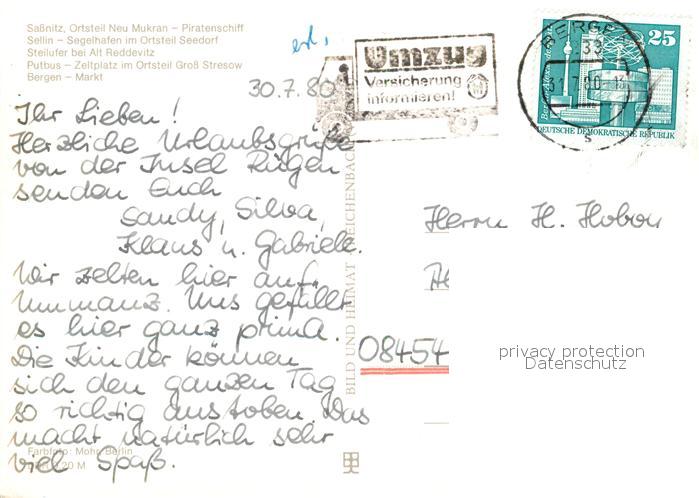 Saßnitz, Ortsteil Neu Mukran – Piratenschiff
Sellin – Segelhafen im Ortsteil Seedorf
Steilufer bei Alt Reddevitz
Putbus – Zeltplatz im Ortsteil Groß Stresow
Bergen – Markt
erl.
30.7.80
Ihr Lieben!
Herzliche Urlaubsgrüße
von der Insel Rügen
senden Euch
Sandy, Silva,
Klaus u. Gabriele.
Wir zelten hier auf
Ummanz. Uns gefällt
es hier ganz prima.
Die Kinder können
sich den ganzen Tag
so richtig austoben. Das
macht natürlich sehr
viel Spaß.
Farbfoto: Mohr, Berlin
0,20 M
BILD UND HEIMAT REICHENBACH
Umzug
Versicherung
informieren!
BERGEN
33
7.80
s
25
DEUTSCHE DEMOKRATISCHE REPUBLIK
Herrn H.
08454
privacy protection
Datenschutz